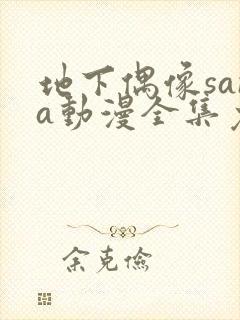 地下偶像sa
a动漫全集
余克俭